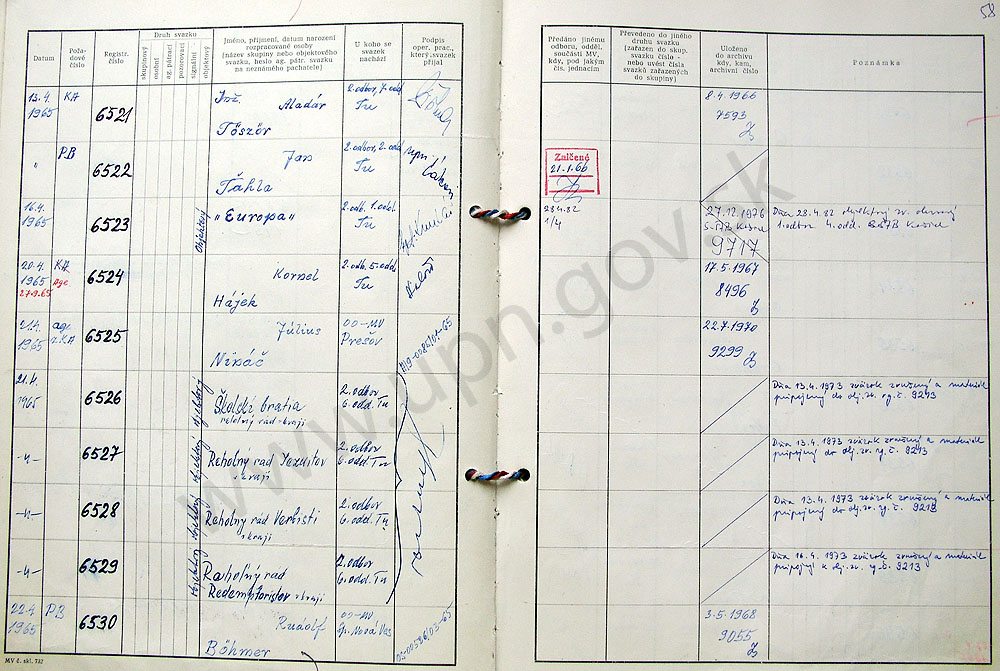 58
Datum
Pořadové číslo
Registr. číslo
Druh svazku
skupinový
osobní
ag. pátrací
pozorovací
signální
objektový
Jméno, příjmení, datum narození rozpracované osoby
(název skupiny nebo objektového svazku, heslo ag. pátr. svazku na neznámého pachatele)
U koho se svazek nachází
Podpis oper. prac., který svazek přijal
Předáno jinému odboru, odděl. součásti MV, kdy, pod jakým čís. jednacím
Převedeno do jiného druhu svazku (zařazen do skup. svazku číslo - nebo uvést čísla svazků zařazených do skupiny)
Uloženo do archivu kdy, kam, archivní číslo
Poznámka
13.4. 1965
KA
6521
Inž. Aladár
Töször
2. odbor, 7. odd.
Tu
8.4.1966
7593
"
PB
6522
Ján
Ťahla
2. odbor, 2. odd.
Tu
Zalčené
21.1.66
16.4. 1965
6523
Objektový
"Európa"
2. odb. 1. odd.
Tu
28.4.82
1/4
27.12.1976
9717
Dňa 28.4.82 objektový zv.
1. odbor 4. odd. ŠtB
20.4. 1965
27.9.65
KA
Age
6524
Kornel
Hájek
2. odb. 5. odd.
Tu
17.5.1967
8496
21.4. 1965
age.
z KA
6525
Július
OO-MV
Prešov
22.7.1970
9299
21.4. 1965
6526
objektový
Školskí bratia
reholný rád - kraji
2. odbor
6. odd. Tu
Dňa 13.4.1973 zväzok zrušený a materiál
pripojený do obj. zv. reg. č. 9213
-"-
6527
objektový
Reholný rád Jezuitov
v kraji
2. odbor
6. odd. Tu
Dňa 13.4.1973 zväzok zrušený a materiál
pripojený do obj. zv. reg. č. 9213
-"-
6528
objektový
Reholný rád Verbisti
v kraji
2. odbor
6. odd. Tu
Dňa 13.4.1973 zväzok zrušený a materiál
pripojený do obj. zv. reg. č. 9213
-"-
6529
objektový
Reholný rád
Redemptoristov v kraji
2. odbor
6. odd. Tu
Dňa 16.4.1973 zväzok zrušený a materiál
pripojený k obj. zv. reg. č. 9213
22.4. 1965
PB
6530
Rudolf
Böhmer
OO-MV
Sp. Nová Ves
3.5.1968
9055
MV č. skl. 732
www.upn.gov.sk